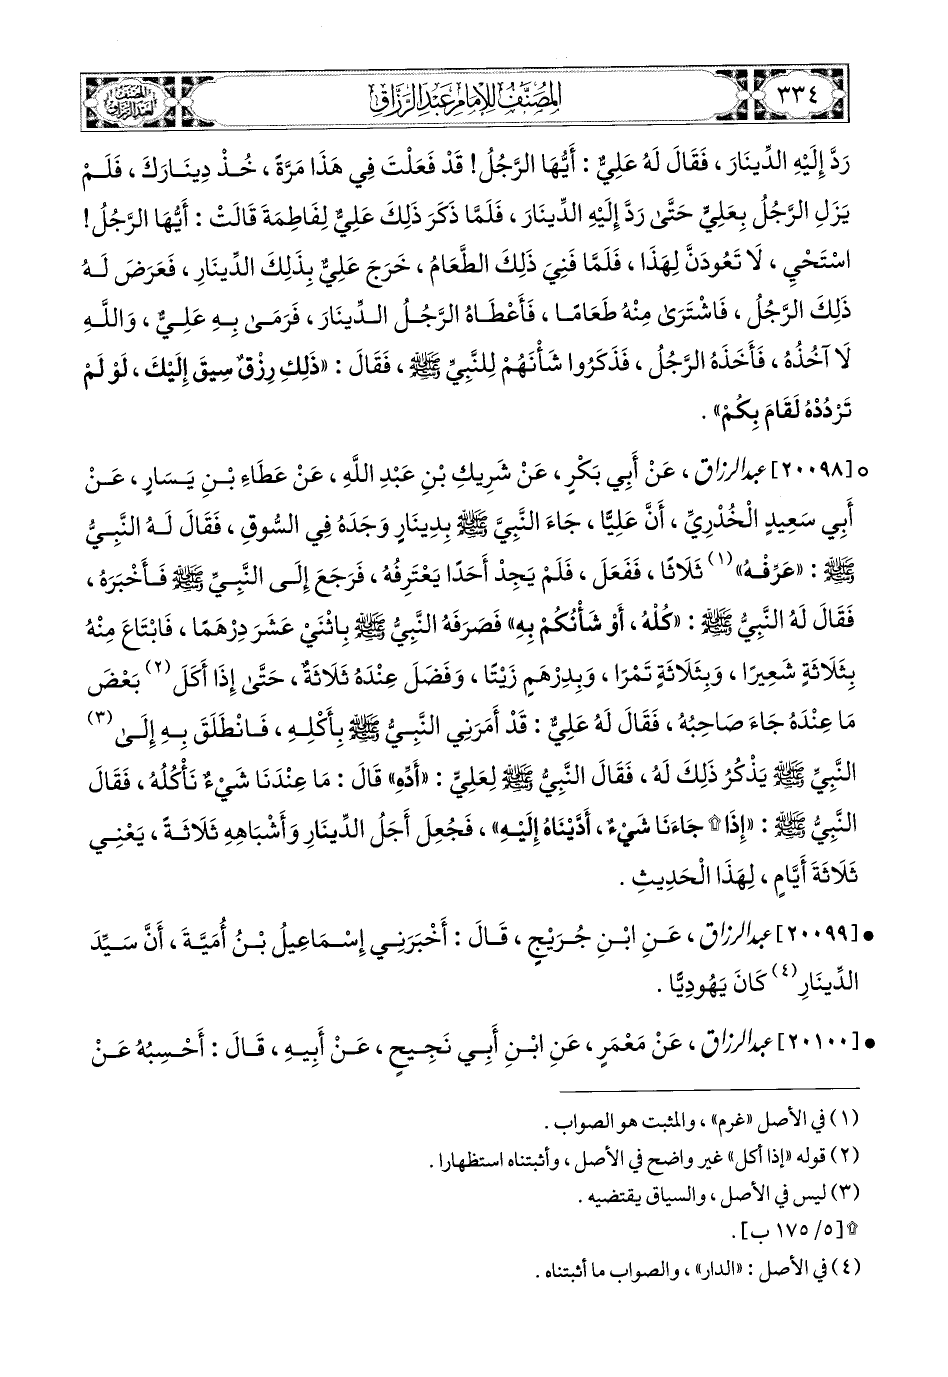 ٣٣٤
المصنف للإمام عبد الرزاق
المصنف لعبد الرزاق
رَدَّ إِلَيْهِ الدِّينَارَ ، فَقَالَ لَهُ عَلِيٌّ : أَيُّهَا الرَّجُلُ! قَدْ فَعَلْتَ فِي هَذَا مَرَّةً ، خُذْ دِينَارَكَ ، فَلَمْ
يَزَلِ الرَّجُلُ بِعَلِيٍّ حَتَّىٰ رَدَّ إِلَيْهِ الدِّينَارَ ، فَلَمَّا ذَكَرَ ذَلِكَ عَلِيٌّ لِفَاطِمَةَ قَالَتْ : أَيُّهَا الرَّجُلُ!
اسْتَحْيِ ، لَا تَعُودَنَّ لِهَذَا ، فَلَمَّا فَنِيَ ذَلِكَ الطَّعَامُ ، خَرَجَ عَلِيٌّ بِذَلِكَ الدِّينَارِ ، فَعَرَضَ لَهُ
ذَلِكَ الرَّجُلُ ، فَاشْتَرَىٰ مِنْهُ طَعَامًا ، فَأَعْطَاهُ الرَّجُلُ الدِّينَارَ ، فَرَمَىٰ بِهِ عَلِيٌّ ، وَاللَّهِ
لَا آخُذُهُ ، فَأَخَذَهُ الرَّجُلُ ، فَذَكَرُوا شَأْنَهُمْ لِلنَّبِيِّ ﷺ ، فَقَالَ : «ذَلِكِ رِزْقٌ سِيقَ إِلَيْكَ ، لَوْ لَمْ
تَرْدُدْهُ لَقَامَ بِكُمْ» .
o [٢٠٠٩٨] عبد الرزاق ، عَنْ أَبِي بَكْرٍ ، عَنْ شَرِيكِ بْنِ عَبْدِ اللَّهِ ، عَنْ عَطَاءِ بْنِ يَسَارٍ ، عَنْ
أَبِي سَعِيدٍ الْخُدْرِيِّ ، أَنَّ عَلِيًّا ، جَاءَ النَّبِيَّ ﷺ بِدِينَارٍ وَجَدَهُ فِي السُّوقِ ، فَقَالَ لَهُ النَّبِيُّ
ﷺ : «عَرِّفْهُ» (١) ثَلَاثًا ، فَفَعَلَ ، فَلَمْ يَجِدْ أَحَدًا يَعْتَرِفُهُ ، فَرَجَعَ إِلَى النَّبِيِّ ﷺ فَأَخْبَرَهُ ،
فَقَالَ لَهُ النَّبِيُّ ﷺ : «كُلْهُ ، أَوْ شَأْنُكُمْ بِهِ» فَصَرَفَهُ النَّبِيُّ ﷺ بِاثْنَيْ عَشَرَ دِرْهَمًا ، فَابْتَاعَ مِنْهُ
بِثَلَاثَةٍ شَعِيرًا ، وَبِثَلَاثَةٍ تَمْرًا ، وَبِدِرْهَمٍ زَيْتًا ، وَفَضَلَ عِنْدَهُ ثَلَاثَةٌ ، حَتَّىٰ إِذَا أَكَلَ (٢) بَعْضَ
مَا عِنْدَهُ جَاءَ صَاحِبُهُ ، فَقَالَ لَهُ عَلِيٌّ : قَدْ أَمَرَنِي النَّبِيُّ ﷺ بِأَكْلِهِ ، فَانْطَلَقَ بِهِ إِلَىٰ (٣)
النَّبِيِّ ﷺ يَذْكُرُ ذَلِكَ لَهُ ، فَقَالَ النَّبِيُّ ﷺ لِعَلِيٍّ : «أَدِّهِ» قَالَ : مَا عِنْدَنَا شَيْءٌ نَأْكُلُهُ ، فَقَالَ
النَّبِيُّ ﷺ : «إِذَا ۩ جَاءَنَا شَيْءٌ ، أَدَّيْنَاهُ إِلَيْهِ» ، فَجُعِلَ أَجَلُ الدِّينَارِ وَأَشْبَاهِهِ ثَلَاثَةً ، يَعْنِي
ثَلَاثَةَ أَيَّامٍ ، لِهَذَا الْحَدِيثِ .
• [٢٠٠٩٩] عبد الرزاق ، عَنِ ابْنِ جُرَيْجٍ ، قَالَ : أَخْبَرَنِي إِسْمَاعِيلُ بْنُ أُمَيَّةَ ، أَنَّ سَيِّدَ
الدِّينَارِ (٤) كَانَ يَهُودِيًّا .
• [٢٠١٠٠] عبد الرزاق ، عَنْ مَعْمَرٍ ، عَنِ ابْنِ أَبِي نَجِيحٍ ، عَنْ أَبِيهِ ، قَالَ : أَحْسِبُهُ عَنْ
(١) في الأصل «غرم» ، والمثبت هو الصواب .
(٢) قوله «إذا أكل» غير واضح في الأصل ، وأثبتناه استظهارا .
(٣) ليس في الأصل ، والسياق يقتضيه .
۩ [٥/ ١٧٥ ب] .
(٤) في الأصل : «الدار» ، والصواب ما أثبتناه .